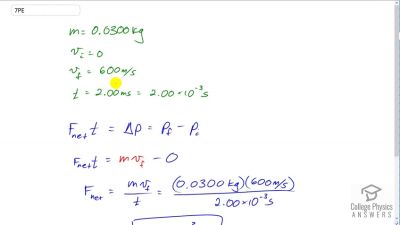 7PE
m = 0.0300 kg
v_i = 0
v_f = 600 m/s
t = 2.00 ms = 2.00 × 10^-3 s
F_net t = Δp = p_f - p_o
F_net t = m v_f - 0
F_net = m v_f / t = (0.0300 kg)(600 m/s) / 2.00 × 10^-3 s
College Physics
ANSWERS